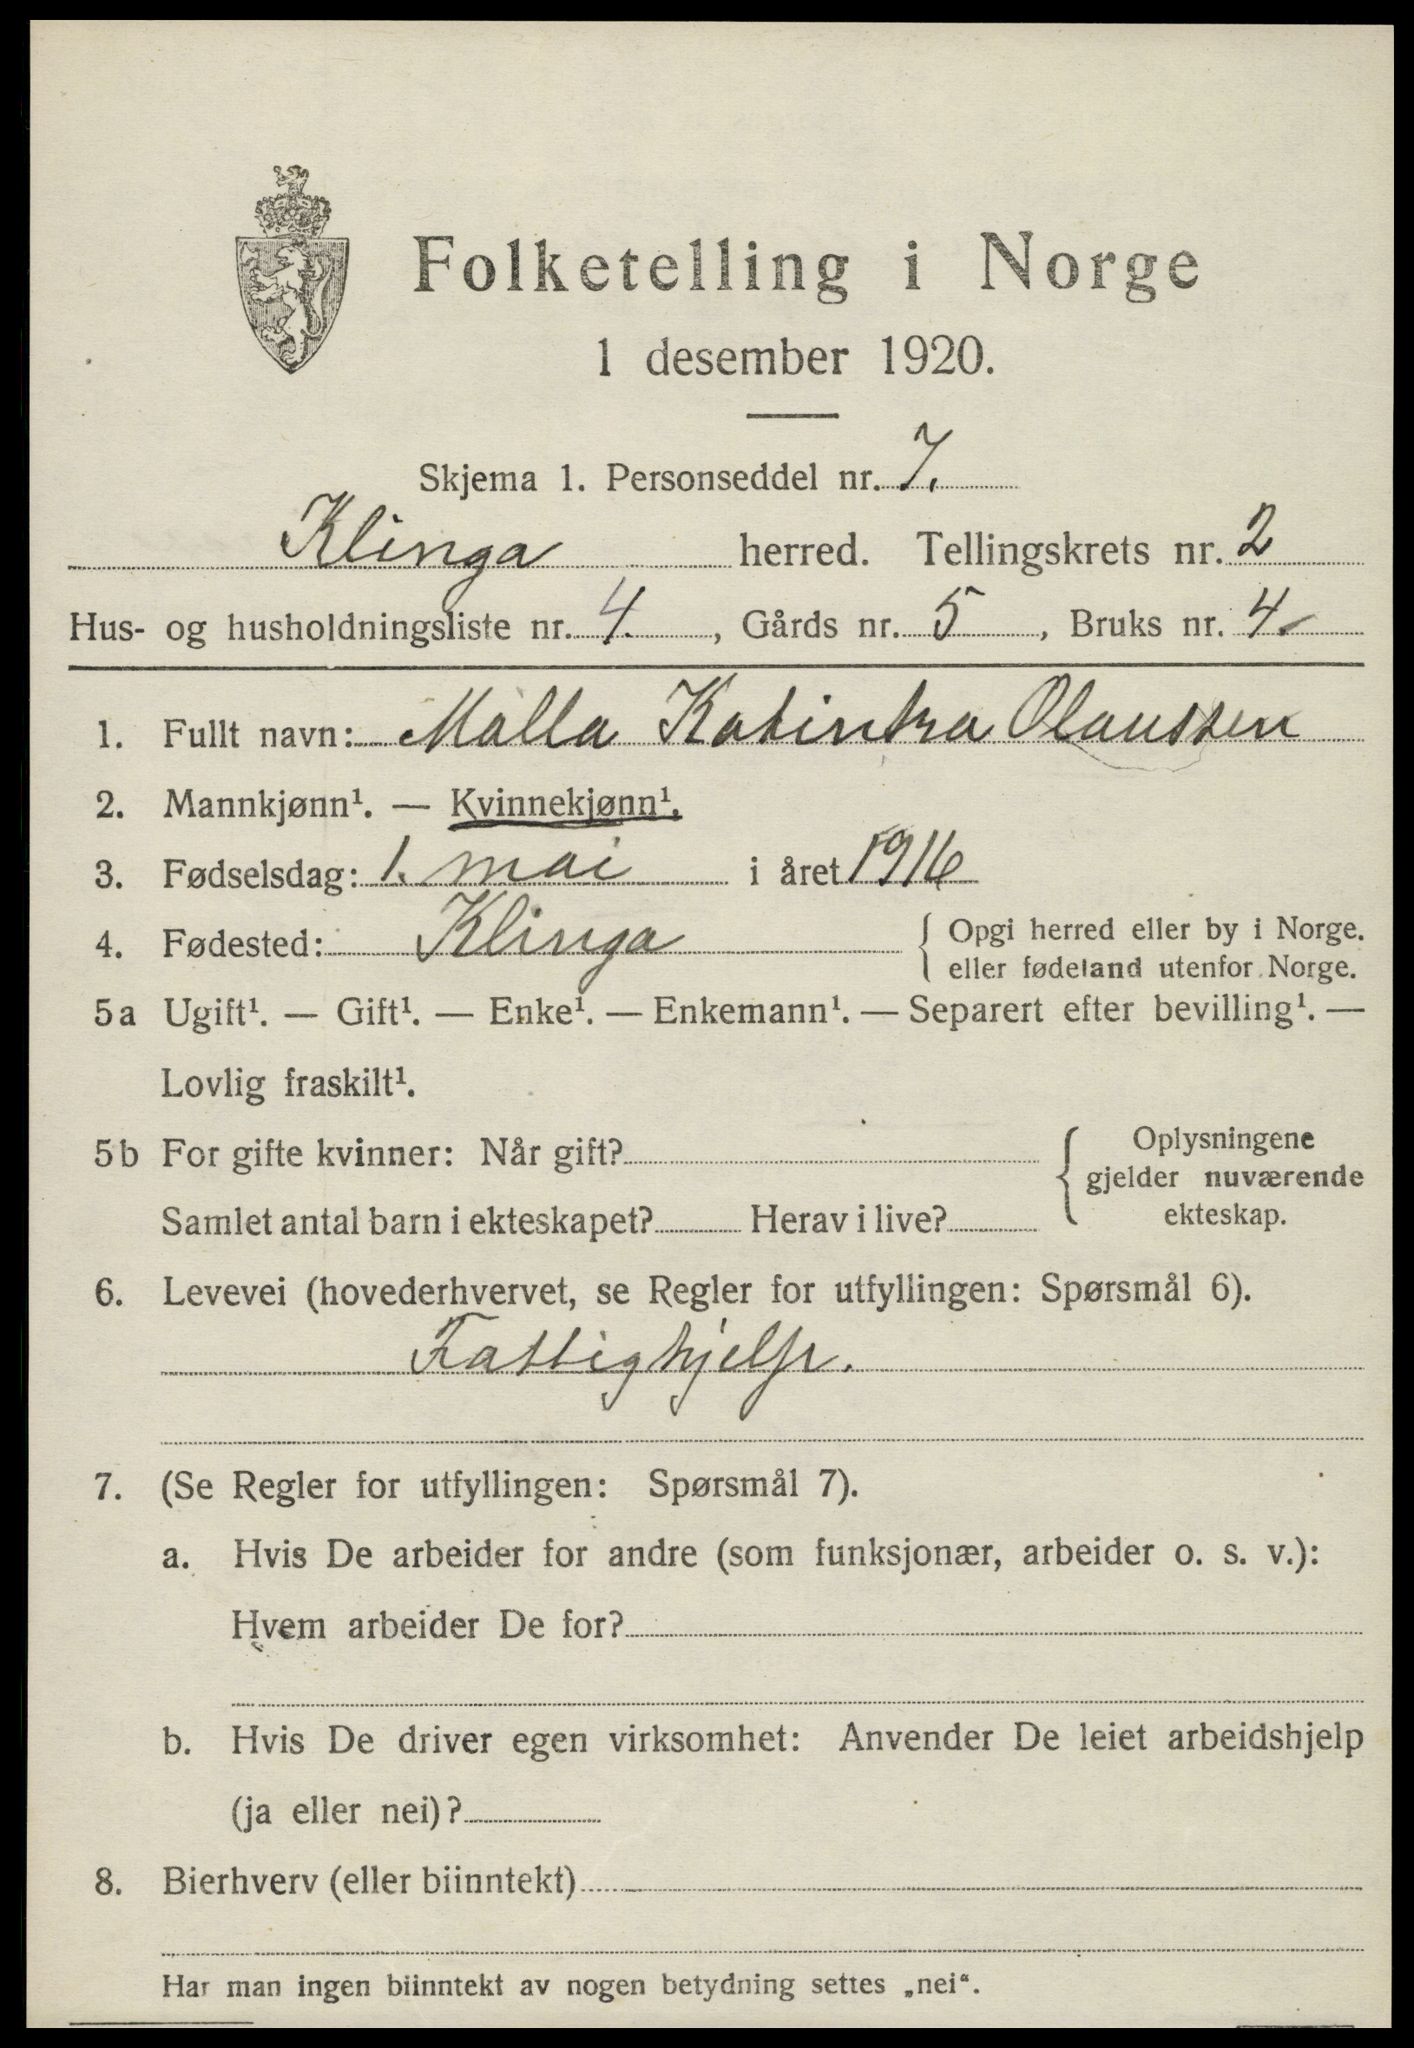 Folketelling i Norge
1 desember 1920.
Skjema 1. Personseddel nr. 7.
Klinga herred. Tellingskrets nr. 2
Hus- og husholdningsliste nr. 4. , Gårds nr. 5 , Bruks nr. 4.
1. Fullt navn: Malla Katinka Olaussen
2. Mannkjønn¹. — Kvinnekjønn¹.
3. Fødselsdag: 1. mai i året 1916
4. Fødested: Klinga { Opgi herred eller by i Norge.
eller fødeland utenfor Norge.
5a Ugift¹. — Gift¹. — Enke¹. — Enkemann¹. — Separert efter bevilling¹. —
Lovlig fraskilt¹.
5b For gifte kvinner: Når gift? { Oplysningene
gjelder nuværende
Samlet antal barn i ekteskapet? Herav i live? ekteskap.
6. Levevei (hovederhvervet, se Regler for utfyllingen: Spørsmål 6).
Fattighjelp.
7. (Se Regler for utfyllingen: Spørsmål 7).
a. Hvis De arbeider for andre (som funksjonær, arbeider o. s. v.):
Hvem arbeider De for?
b. Hvis De driver egen virksomhet: Anvender De leiet arbeidshjelp
(ja eller nei)?
8. Bierhverv (eller biinntekt)
Har man ingen biinntekt av nogen betydning settes „nei“.